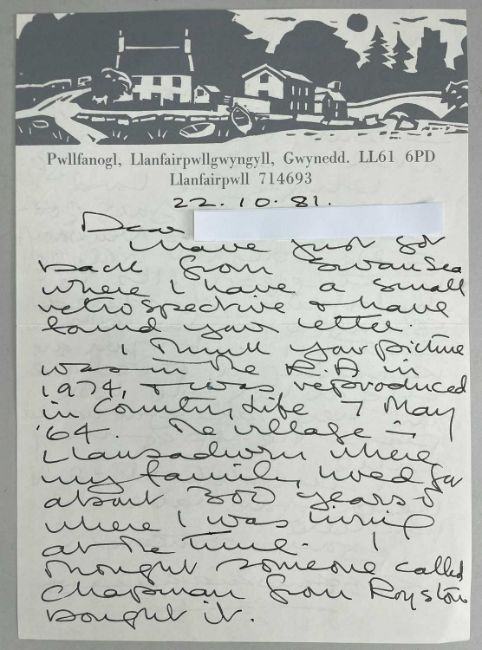 Pwllfanogl, Llanfairpwllgwyngyll, Gwynedd. LL61 6PD
Llanfairpwll 714693
22.10.81.
Dear
I have just got
back from Swansea
where I have a small
retrospective & have
found your letter.
I think your picture
was in the R.A in
1974, & was reproduced
in Country Life 7 May
'64. The village is
Llansadwrn where
my family lived for
about 300 years &
where I was living
at the time. I
thought someone called
Chapman from Royston
bought it.